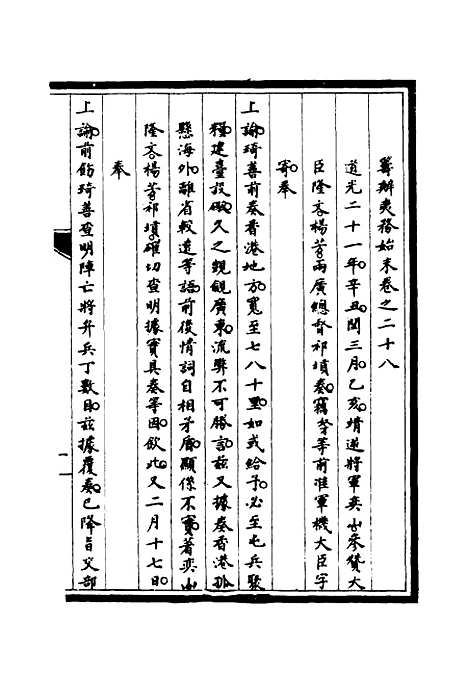 籌辦夷務始末卷之二十八
道光二十一年辛丑閏三月乙亥靖逆將軍奕山參贊大
臣隆文楊芳兩廣總督祁𡎴奏竊奴才等前准軍機大臣字
寄奉
上諭琦善前奏香港地方寬至七八十里如或給予必至屯兵聚
糧建臺設礮久之覬覦廣東流弊不可勝言茲又據奏香港孤
懸海外離省較遠等語前後情詞自相矛盾顯係不實著奕山
隆文楊芳祁𡎴確切查明據實具奏等因欽此又二月十七日
奉
上諭前飭琦善查明陣亡將弁兵丁數目茲據覆奏已降旨交部